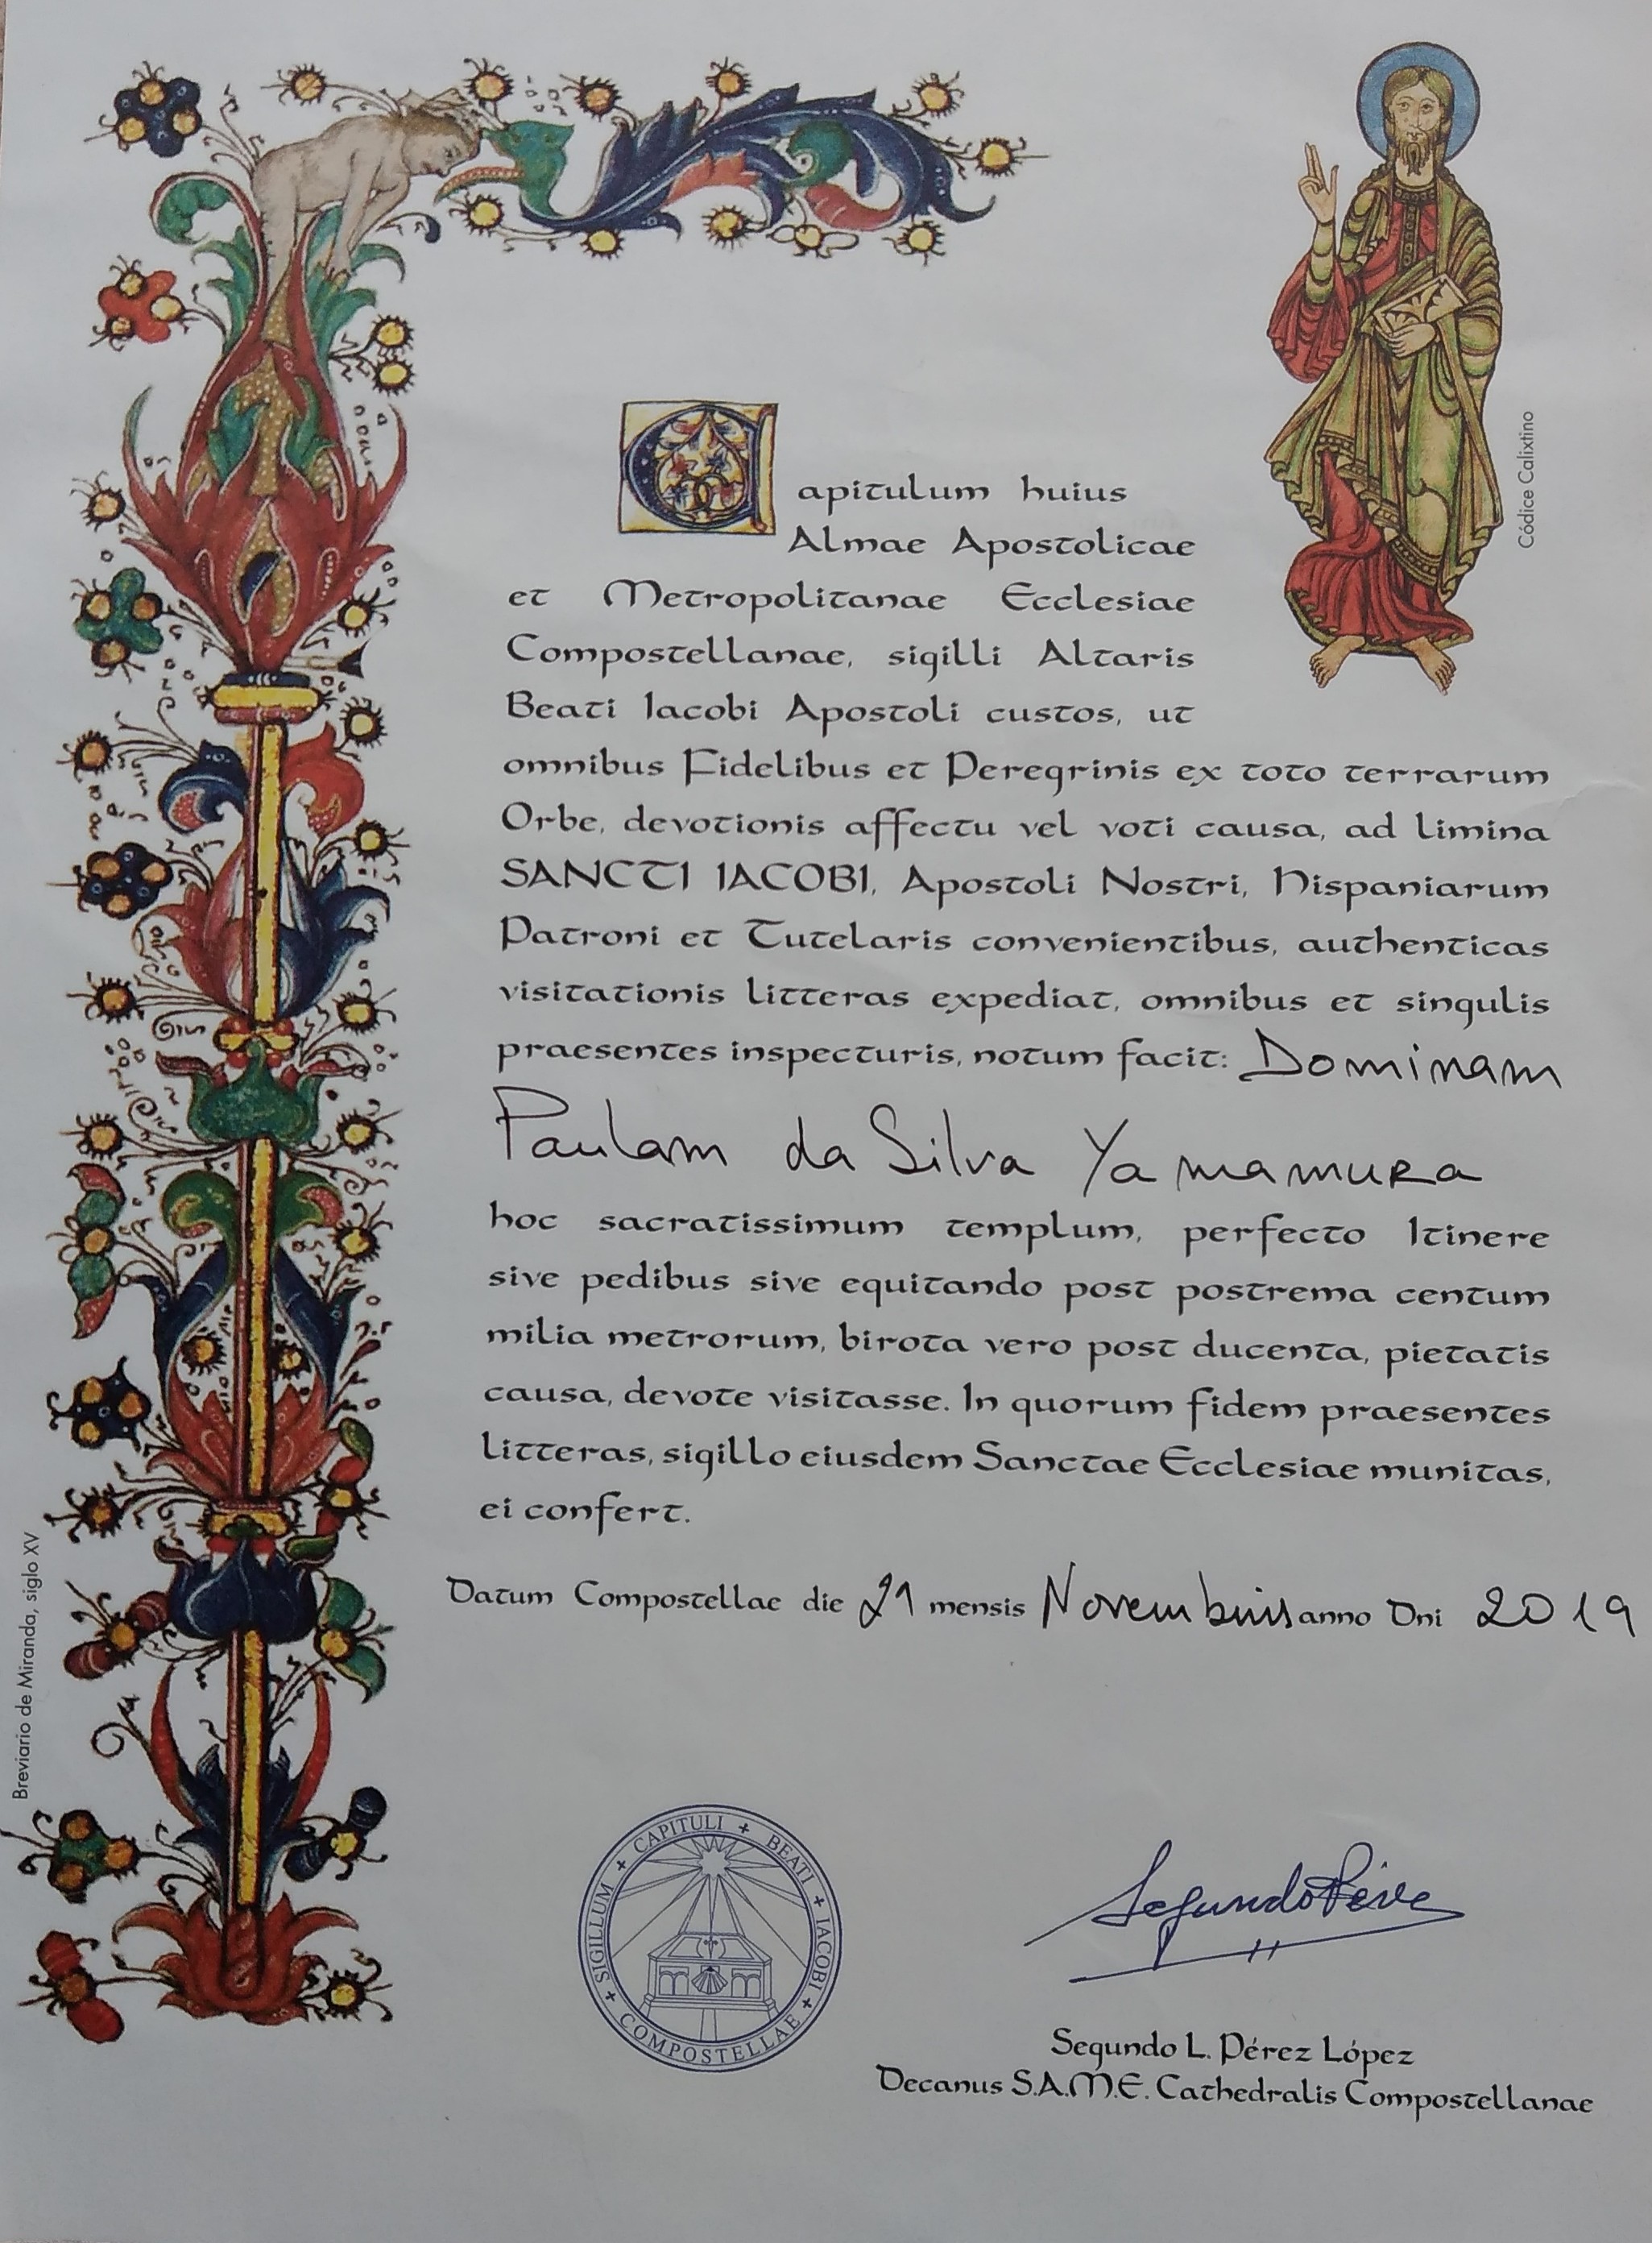 Códice Calixtino
Capitulum huius
Almae Apostolicae
et Metropolitanae Ecclesiae
Compostellanae, sigilli Altaris
Beati Iacobi Apostoli custos, ut
omnibus Fidelibus et Peregrinis ex toto terrarum
Orbe, devotionis affectu vel voti causa, ad limina
SANCTI IACOBI, Apostoli Nostri, Hispaniarum
Patroni et Tutelaris convenientibus, authenticas
visitationis litteras expediat, omnibus et singulis
praesentes inspecturis, notum facit: Dominam
Paulam da Silva Yamamura
hoc sacratissimum templum, perfecto Itinere
sive pedibus sive equitando post postrema centum
milia metrorum, birota vero post ducenta, pietatis
causa, devote visitasse. In quorum fidem praesentes
litteras, sigillo eiusdem Sanctae Ecclesiae munitas,
ei confert.
Datum Compostellae die 21 mensis Novembris anno Dni 2019
Breviario de Miranda, siglo XV
SIGILLUM + CAPITULI + BEATI + IACOBI + COMPOSTELLAE +
Segundo Pérez
Segundo L. Pérez López
Decanus S.A.M.E. Cathedralis Compostellanae